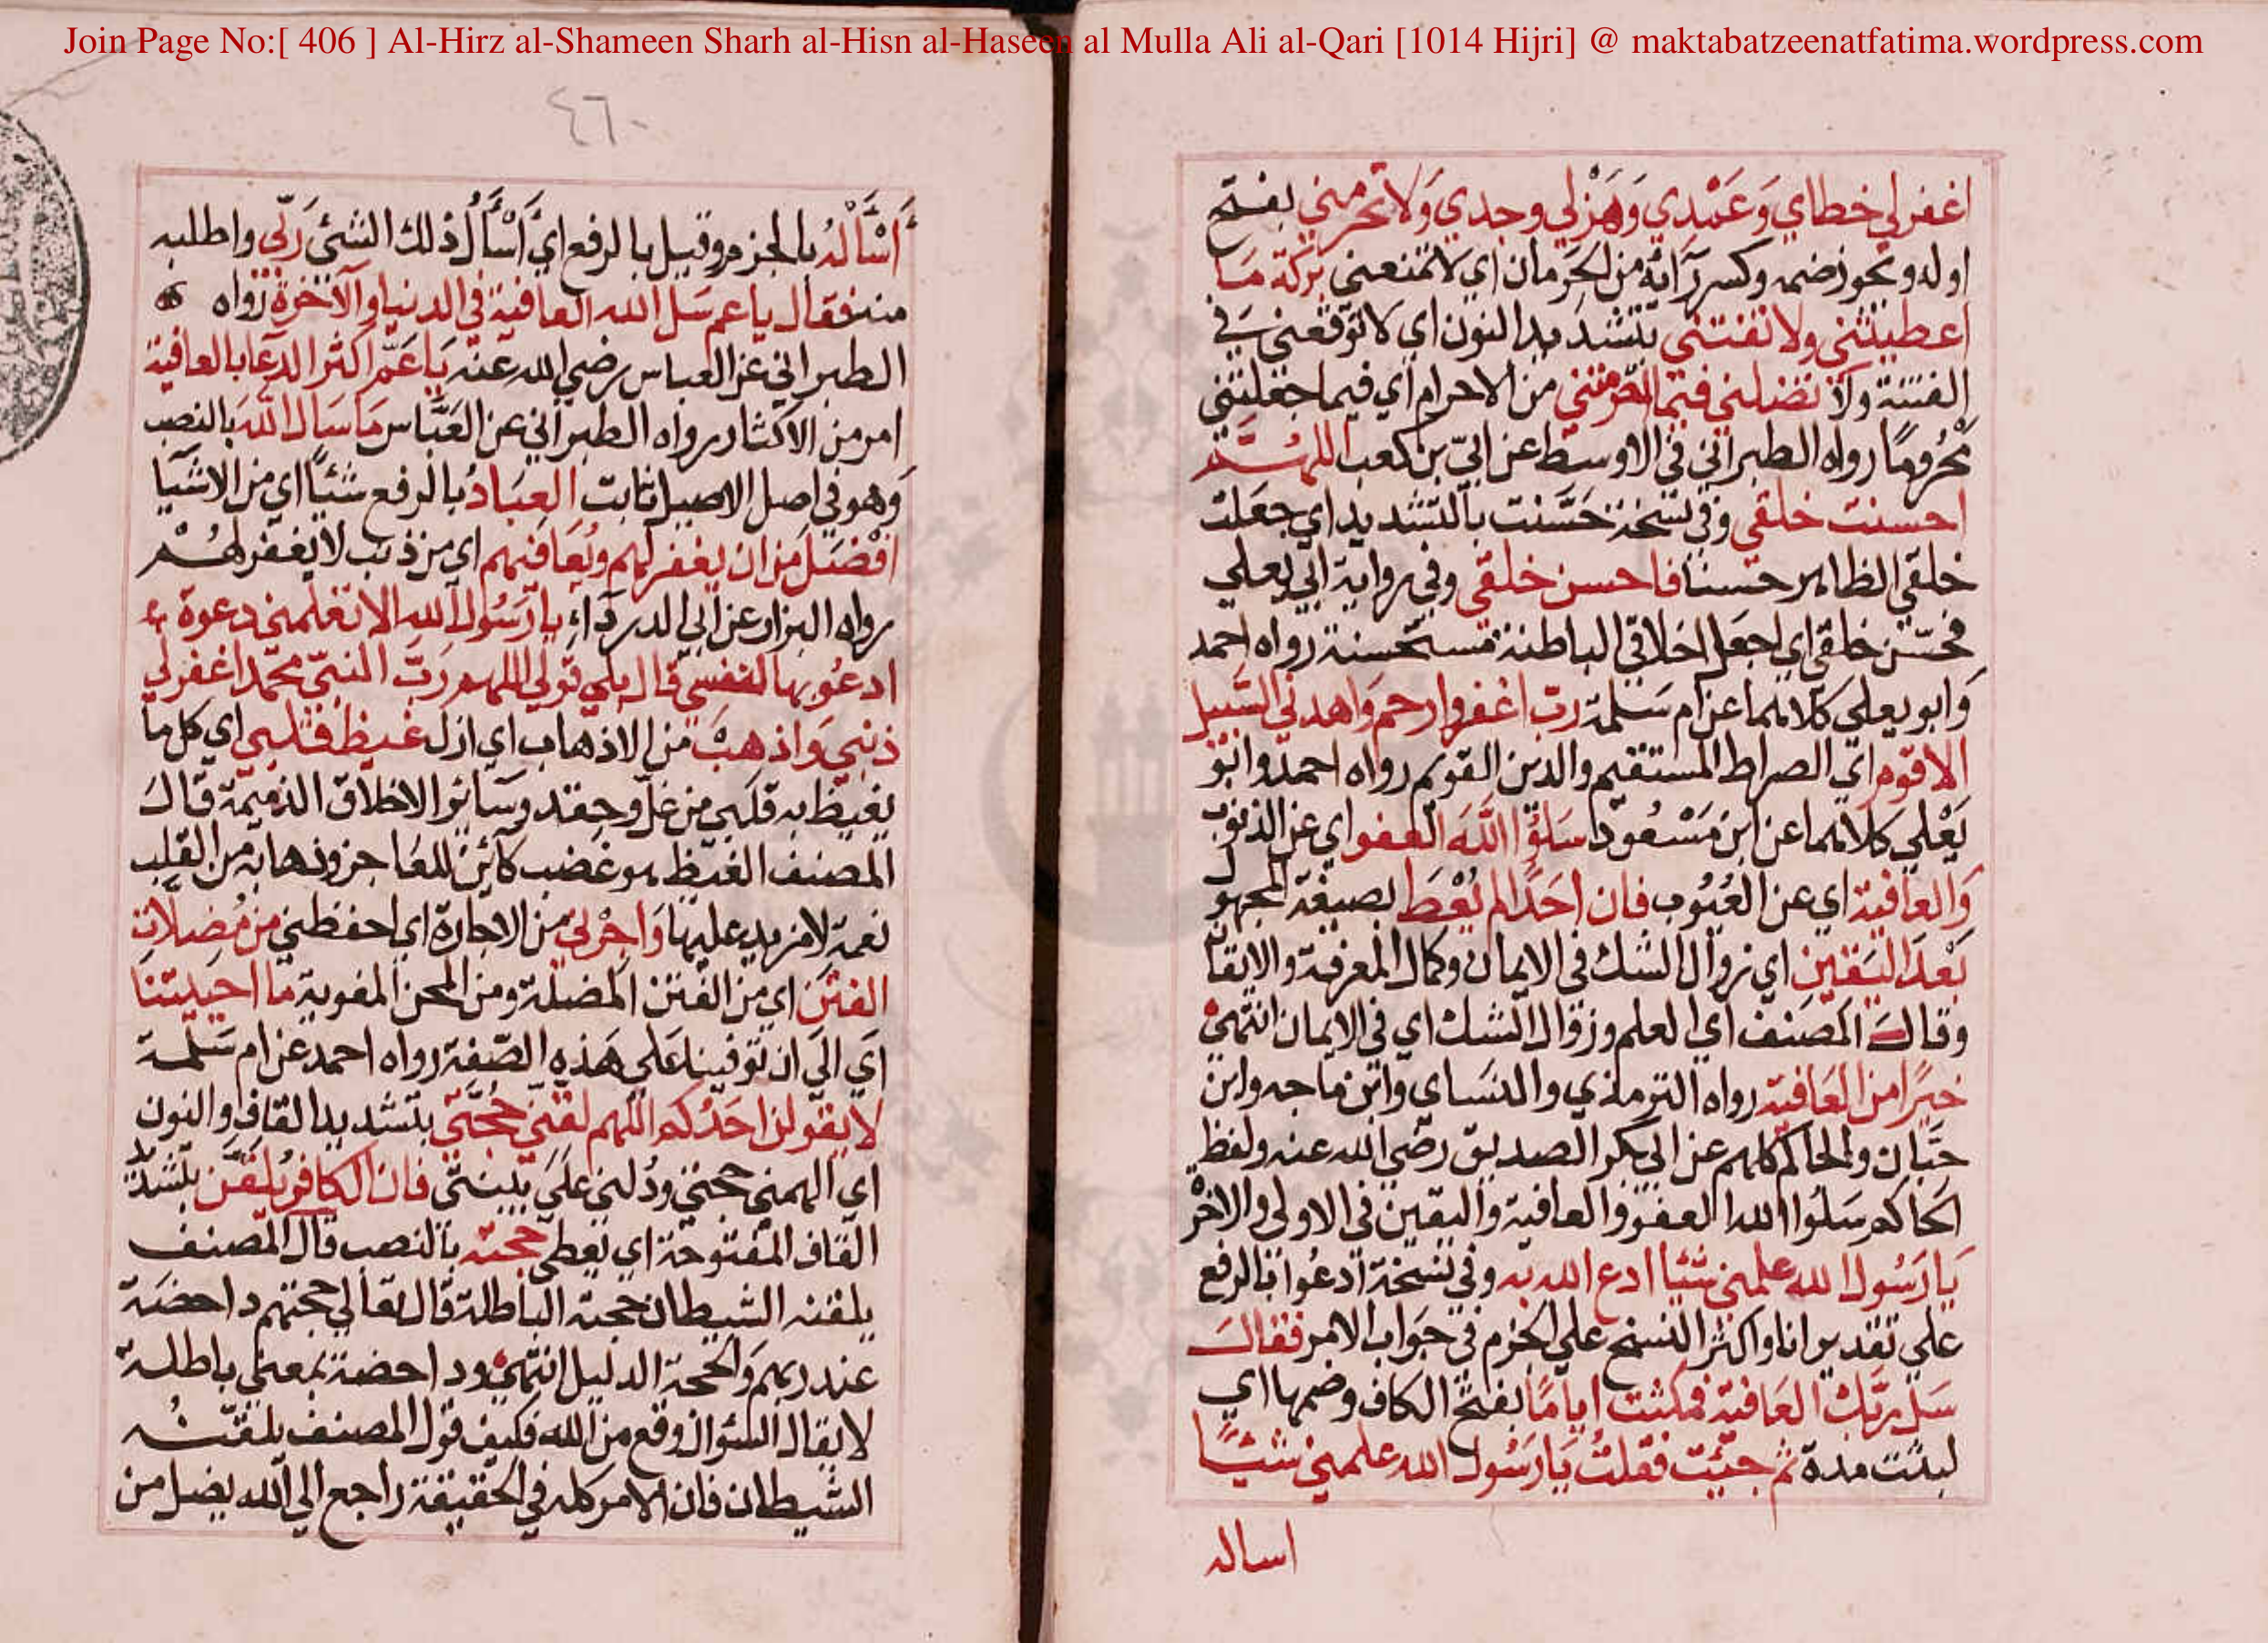 Join Page No:[ 406 ] Al-Hirz al-Shameen Sharh al-Hisn al-Haseen al Mulla Ali al-Qari [1014 Hijri] @ maktabatzeenatfatima.wordpress.com
اغفر لي خطاي وَعَمْدي وَهَزْلي وجدي وَلا تحرمني بفتح
اوله ويجوز ضمه وكسر رآئه من الحَرمان اي لا تمنعني بركة مَا
اعطيتني ولا تفتني بتشديد النون اي لا توقعني في
الفتنة ولا تضلني فيما احرمتني من الاحرام اي فيما جعلتني
مَحْرُومًا رواه الطبراني في الاوسط عن ابيّ بن كعب اللهُمَّ
احسنت خلقي وفي نسخة حَسَّنت بالتشديد اي جعلت
خلقي الظاهر حسنا فاحسن خلقي وفي رواية ابي يعلي
فحسّن خلقي اي اجعل اخلاقي الباطنة مستحسنة رواه احمد
وَابو يعلي كلاهما عن ام سَلمة رب اغفر وارحم وَاهدني السَّبيل
الاقوم اي الصراط المستقيم والدين القويم رواه احمد وابو
يَعْلي كلاهما عن ابن مَسْعُود سَلوُا اللَّهَ العفو اي عن الذنوب
وَالعافية اي عن العُيُوب فان احَدًا لم يُعْطَ بصيغة المجهول
بَعْدَ اليَقين اي زوال الشك في الايمان وكمال المعرفة والايقان
وقال المصَنف اي العلم وزوال الشك اي في الايمان انتهى
خيرًا من العَافية رواه الترمذي والنسَاي وابن ماجه وابن
حبَّان والحاكم كلهم عن ابي بكر الصديق رضي الله عنه ولفظ
الحاكم سَلوُا الله العفو والعافية واليقين في الاولى والاخرة
يَا رَسُول الله علمني شيًا ادع الله به وفي نسخة ادعُوا بالرفع
علي تقدير انا واكثر النسخ علي الجزم في جوَاب الامر فقالَ
سَل ربَّك العَافية فمكثت ايامًا بفتح الكاف وضمها اي
لبثت مدة ثم جئت فقلتُ يَا رَسُول الله علمني شيئًا
اساله
٤٦٠
أَسْأَلْهُ بالجزم وقيل بالرفع اي أَسْأَلُ ذلك الشئ رَبّي واطلبه
منه فقال يا عم سَل الله العافية في الدنيا والآخرة رواه
الطبراني عن العباس رضي الله عنه يَا عَمِّ اكثر الدعَا بالعافية
امر من الاكثار رواه الطبراني عن العَبَّاس مَا سَال اللهَ بالنصب
وَهو في اصل الاصيل ثابت العِبَادُ بالرفع شئًا اي من الاشيا
افْضَلَ من ان يغفر لهم ويُعَافيهم اي من ذنب لا يغفر لهُمْ
رواه البزار عن ابي الدردآء يا رَسُول الله الا تعَلمني دعوة
ادعُو بها لنفسي قال بلي قولي اللهم رَبَّ النبيّ محمّد اغفر لي
ذنبي وَاذهبْ من الاذهاب اي ازل غيظ قلبي اي كل ما
يغيظ به قلبي من غلّ وحقد وسَائر الاخلاق الذميمة قال
المصنف الغيظ هو غضب كائن للعَاجز وذهابه من القلب
نعمة لا مزيد عليها وَاجِرْني من الاجارة اي احفظني من مُضلات
الفتَن اي من الفتن المضلة ومن المحن المغوية ما احييتنا
اي الي ان توفينا علي هَذه الصّفة رواه احمد عن ام سَلمة
لا يقولن احَدُكم اللهم لقنّي حُجَّتي بتشديد القاف والنون
اي الهمني حجتي ودُلني علي بينتي فان الكافر يُلقَّن بتشديد
القاف المفتوحة اي يعطي حجته بالنصب قال المصنف
يلقنه الشيطان حجته الباطلة قال تعالي حجتهم داحضَة
عند ربهم وَالحجة الدليل انتهى وداحضة بمعني باطلة
لا يقال السؤال وقع من الله فكيف قول المصنف يلقنُه
الشيطان فان الامر كله في الحقيقة راجع الي الله يضل من